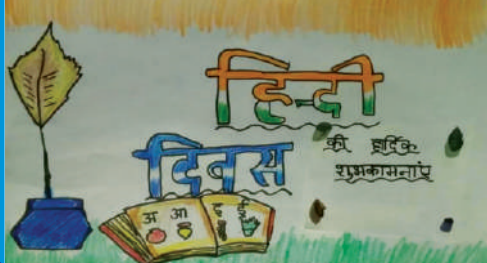 हिन्दी
दिवस
की हार्दिक
शुभकामनाएं
अ आ